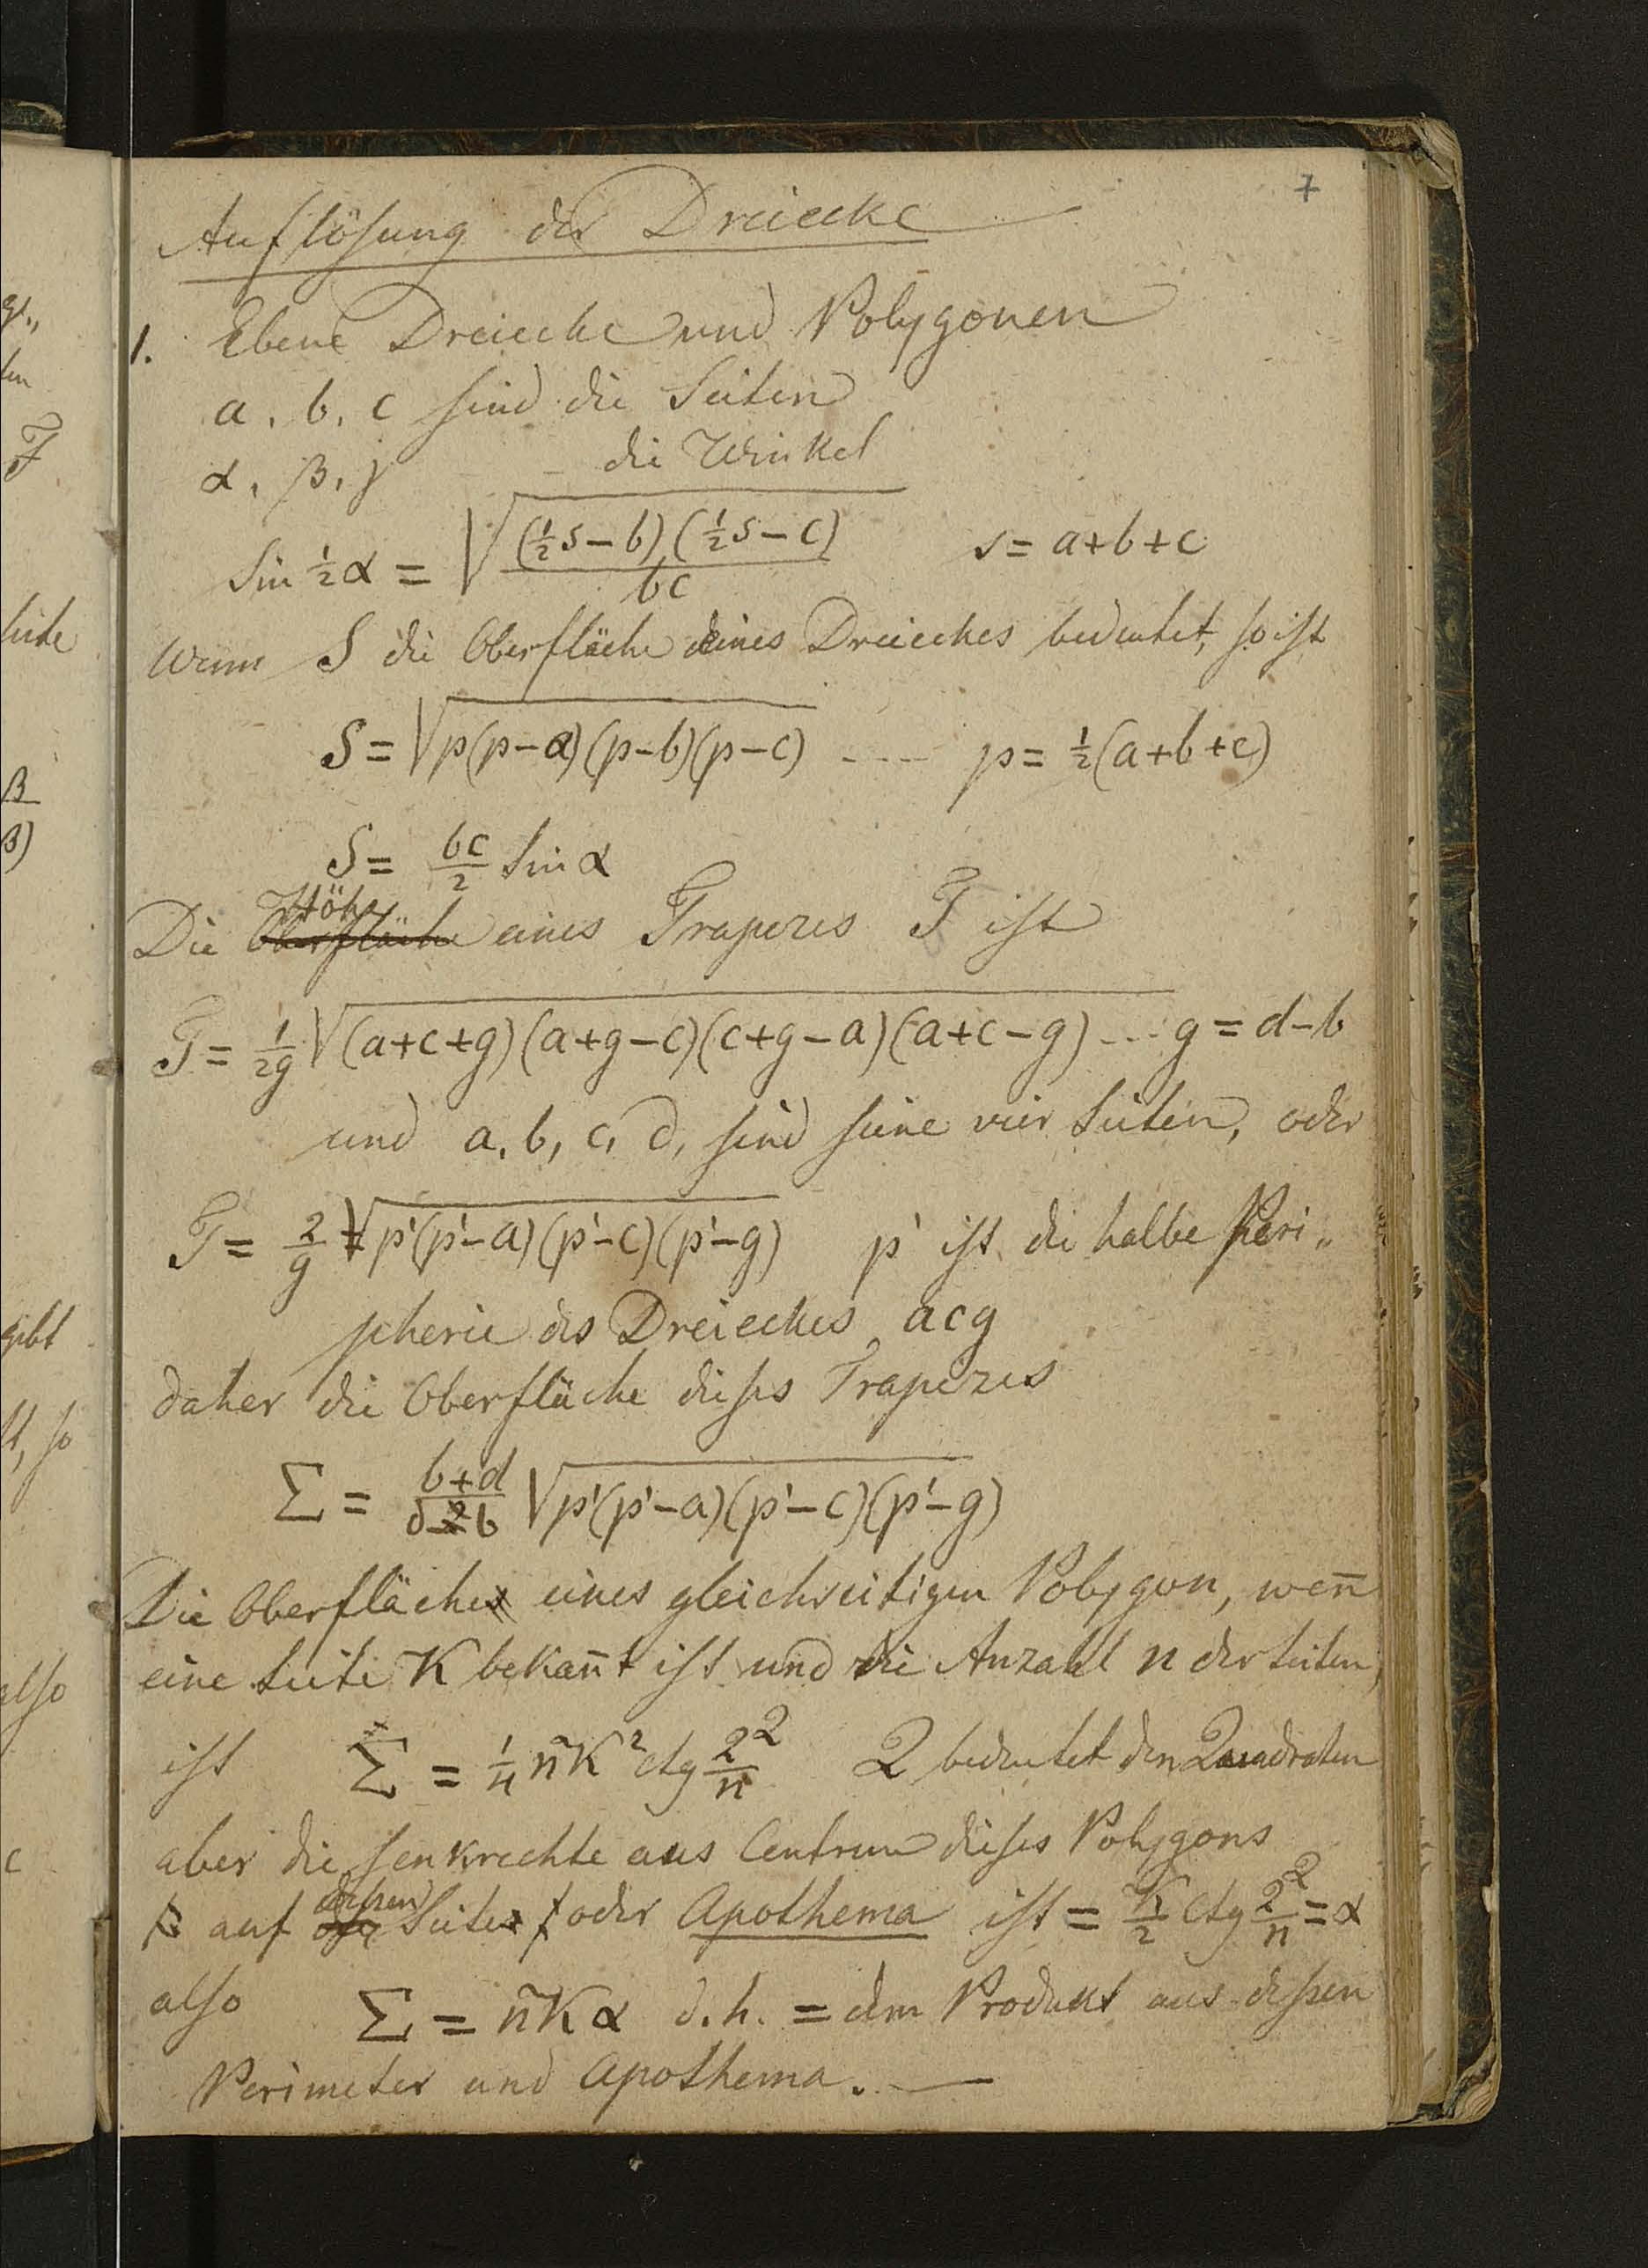 7
Auflösung der Dreiecke
1. Ebene Dreiecke und Polygonen
a, b, c sind die Seiten
α, β, γ – – die Winkel
sin ½ α = √((½s – b)(½s – c) / bc)   s = a+b+c
Wenn S die Oberfläche eines Dreieckes bedeutet, so ist
S = √p(p–a)(p–b)(p–c) ---- p = ½(a+b+c)
S = bc/2 sin α
Höhe
Die Oberfläche eines Trapezes T ist
T = 1/2g √(a+c+g)(a+g–c)(c+g–a)(a+c–g) --- g = d–b
und a, b, c, d, sind seine vier Seiten, oder
T = 2/g √p'(p'–a)(p'–c)(p'–g)   p' ist die halbe Peri„
pherie des Dreieckes acg
daher die Oberfläche dieses Trapezes
Σ = (b+d)/(d–b) √p'(p'–a)(p'–c)(p'–g)
Die Oberfläche eines gleichseitigen Polygon, wen̄
eine Seite K bekan̄t ist und die Anzahl n der Seiten,
ist Σ = ¼ nK² ctg 2Q/n   Q bedeutet den Quadraten
aber die senkrechte aus Centrum dieses Polygons
dessen
auf Seite oder Apothema ist = K/2 ctg 2Q/n = α
also Σ = nKα d. h. = dem Produkt aus dessen
Perimeter und Apothema. —
gibt
st, so
also
c